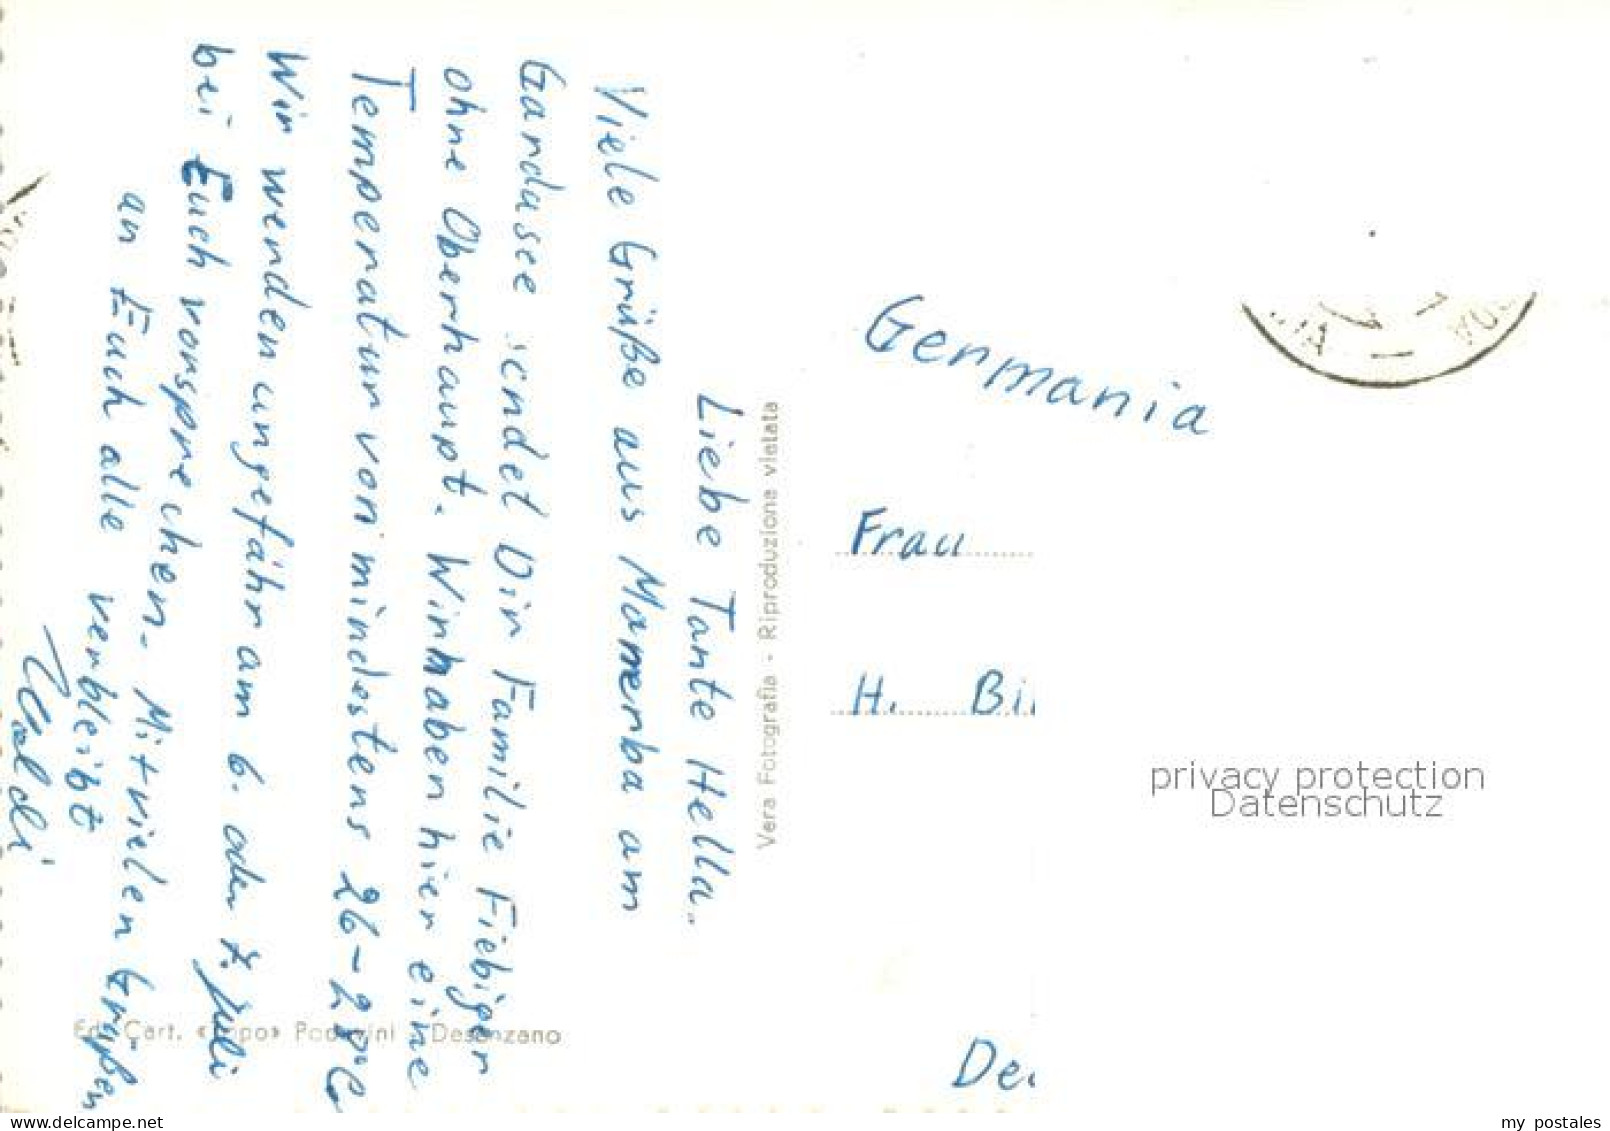 Liebe Tante Hella.
Viele Grüße aus Manerba am
Gardasee sendet Dir Familie Fiebiger
ohne Oberhaupt. Wir haben hier eine
Temperatur von mindestens 26-28°C
Wir werden ungefähr am 6. oder 7. Juli
bei Euch vorsprechen. Mit vielen Grüßen
an Euch alle verbleibt
Vera Fotografia - Riproduzione vietata
Ed. Cart. Desenzano
Germania
Frau
H. Bi
privacy protection
Datenschutz
De
delcampe.net
my postales